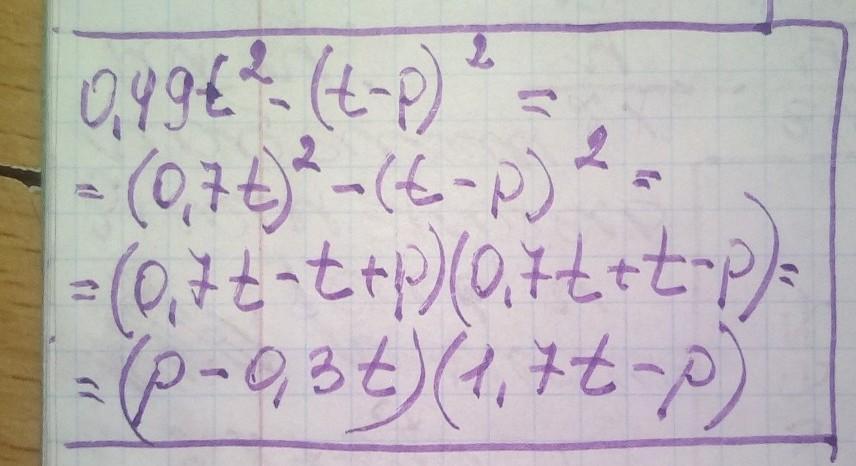 0,49t² - (t-p)² =
= (0,7t)² - (t-p)² =
= (0,7t-t+p)(0,7t+t-p) =
= (p-0,3t)(1,7t-p)